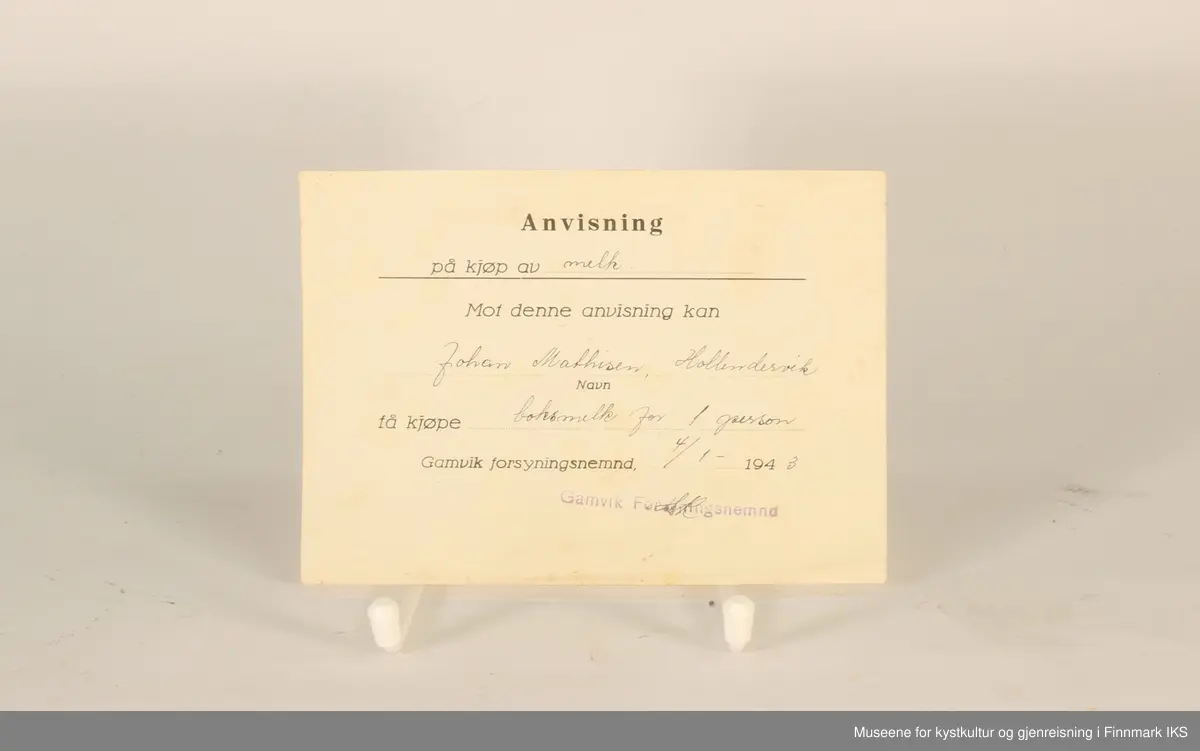 Anvisning
på kjøp av melk
Mot denne anvisning kan
Johan Mathisen, Hollendervik
Navn
få kjøpe boksmelk for 1 person
Gamvik forsyningsnemnd, 4/1- 1943
Gamvik Forsyningsnemnd
Museene for kystkultur og gjenreisning i Finnmark IKS